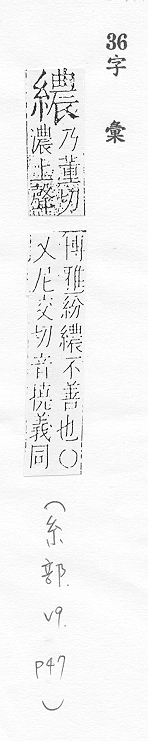 36
字彙
繷 乃董切
濃上聲
博雅紛繷不善也〇
又尼交切音撓義同
(糸部. v9. p47)